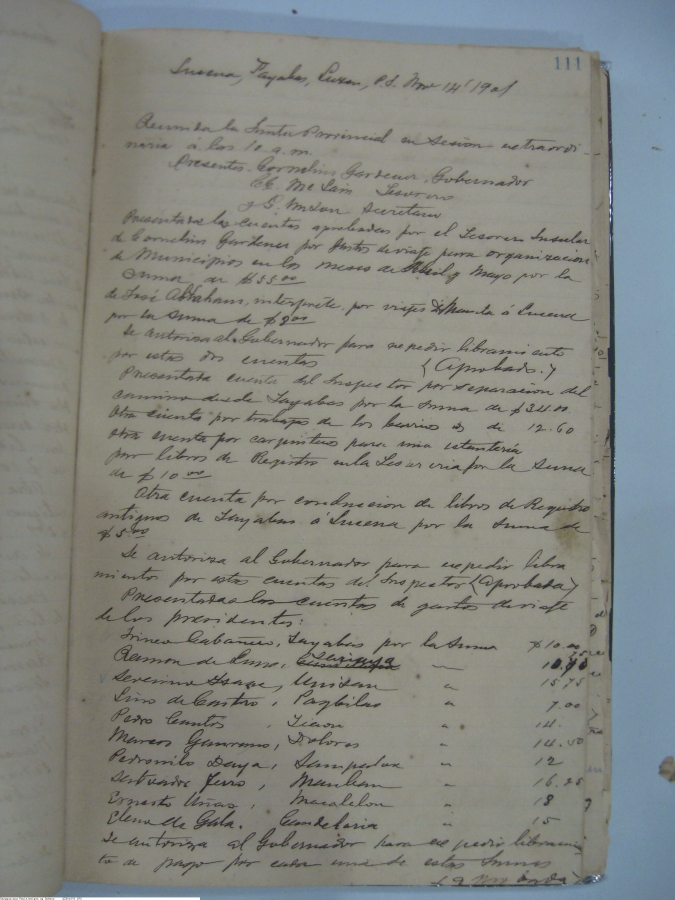 111
Lucena, Tayabas, Luzon, P.I. Nov 14 1901
Reunida la Junta Provincial en sesion extraordi-
naria á las 10 a.m.
Presentes. Cornelius Gardener, Gobernador
Tesorero
Secretario
Presentadas las cuentas aprobadas por el Tesorero Insular
de Cornelius Gardener por gastos de viaje para organizacion
de Municipios en los meses de Abril y Mayo por la
suma de $55.00
de José Abraham, interprete, por viajes de Manila á Lucena
por la suma de $9.00
Se autoriza al Gobernador para expedir libramiento
por estas dos cuentas (Aprobado.)
Presentada cuenta del Inspector por separacion del
camino desde Tayabas por la suma de $34.00
Otra cuenta por trabajos de los barrios de 12.60
Otra cuenta por carpintero para una estanteria
por libros de Registro en la Tesoreria por la suma
de $10.00
Otra cuenta por conduccion de libros de Registro
antiguos de Tayabas á Lucena por la suma de
$5.00
Se autoriza al Gobernador para expedir libra
miento por estas cuentas del Inspector (Aprobada)
Presentadas las cuentas de gastos de viaje
de los presidentes:
Tayabas por la suma $10.00
Ramon de Luna, Sariaya "
Severino Ysaac, Unisan " 15.75
Lino de Castro, Pagbilao " 7.00
Pedro Cantos, Tiaon " 14.
Marcos, Dolores " 14.50
Sampaloc " 12
Salvador, Mauban " 16.25
Ernesto, Macalelon " 18
Elena de Gala. Candelaria " 15
Se autoriza al Gobernador para expedir libramien-
to de pago por cada una de estas sumas